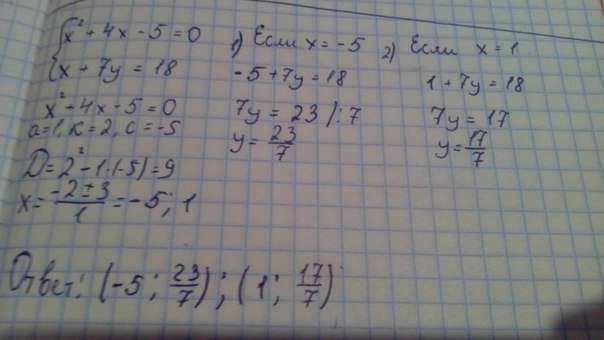 {x² + 4x - 5 = 0
{x + 7y = 18
x² + 4x - 5 = 0
a=1, к=2, c=-5
D = 2² - 1·(-5) = 9
x = (-2 ± 3)/1 = -5; 1
1) Если x = -5
-5 + 7y = 18
7y = 23 ) : 7
y = 23/7
2) Если x = 1
1 + 7y = 18
7y = 17
y = 17/7
Ответ: (-5; 23/7); (1; 17/7)